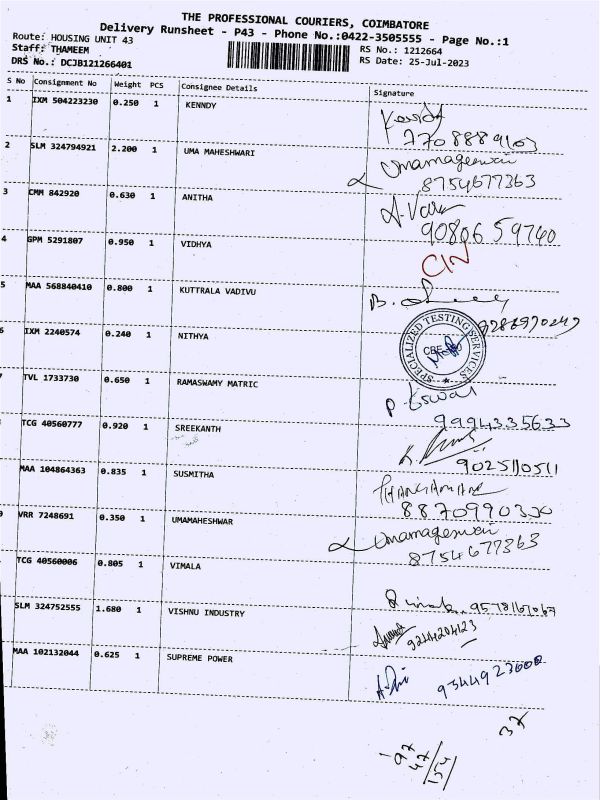 THE PROFESSIONAL COURIERS, COIMBATORE
Delivery Runsheet - P43 - Phone No.:0422-3505555 - Page No.:1
Route: HOUSING UNIT 43
Staff: THAMEEM RS No.: 1212664
DRS No.: DCJB121266401 RS Date: 25-Jul-2023
S No Consignment No Weight PCS Consignee Details Signature
1 IXM 504223230 0.250 1 KENNDY
7708889103
2 SLM 324794921 2.200 1 UMA MAHESHWARI Umamageswari
8754677363
3 CMM 842920 0.630 1 ANITHA
9080659740
4 GPM 5291807 0.950 1 VIDHYA CIN
5 MAA 568840410 0.800 1 KUTTRALA VADIVU
6 IXM 2240574 0.240 1 NITHYA
SPECIALIZED TESTING SERVICES
7 TVL 1733730 0.650 1 RAMASWAMY MATRIC
9994335633
TCG 40560777 0.920 1 SREEKANTH
9025110511
MAA 104864363 0.835 1 SUSMITHA THANGAMANI
8870990330
VRR 7248691 0.350 1 UMAMAHESHWAR Umamageswari
8754677363
TCG 40560006 0.805 1 VIMALA
SLM 324752555 1.680 1 VISHNU INDUSTRY
9244204123
MAA 102132044 0.625 1 SUPREME POWER
9344923600
37